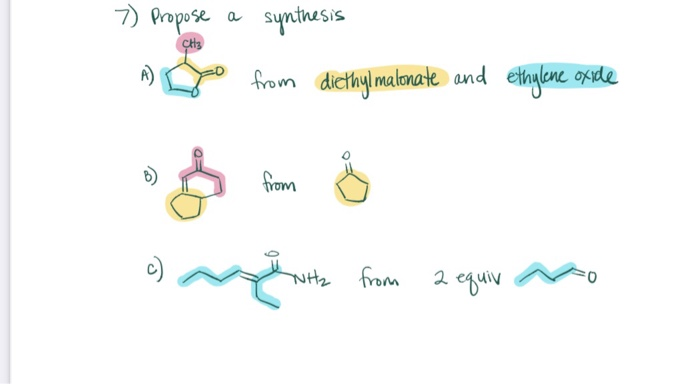 7) Propose a synthesis
CH3
A) O O from diethylmalonate and ethylene oxide
O O
B) from
O
c) NH2 from 2 equiv O